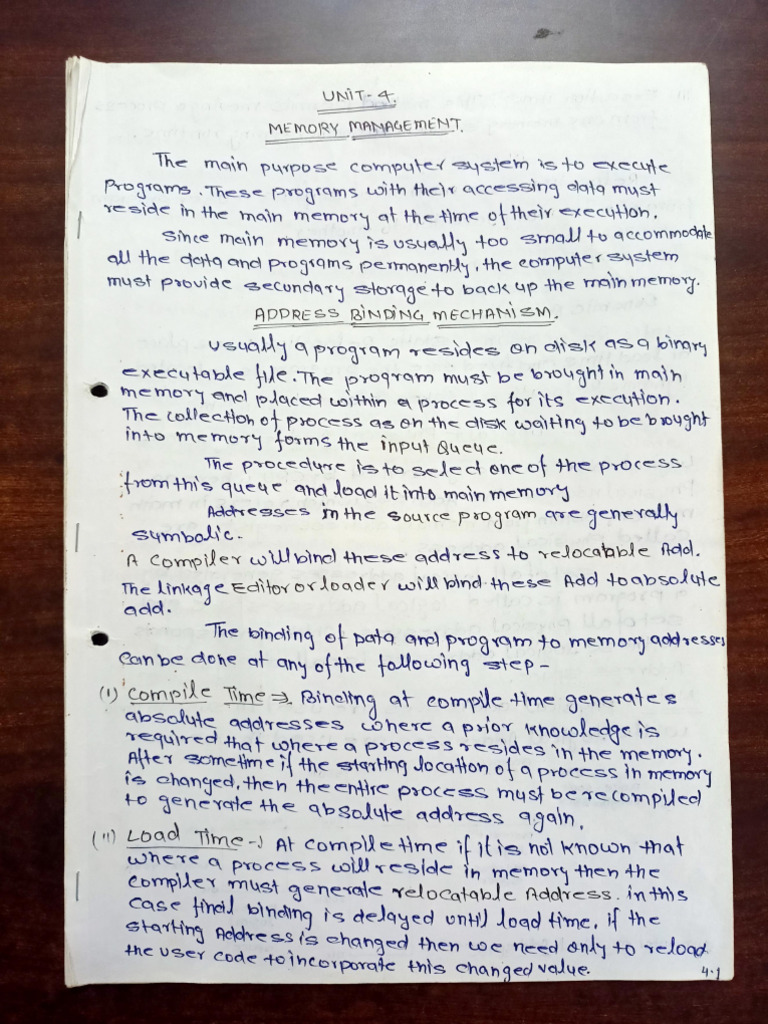 UNIT-4.
MEMORY MANAGEMENT.
The main purpose computer system is to execute
Programs. These programs with their accessing data must
reside in the main memory at the time of their execution.
Since main memory is usually too small to accommodate
all the data and programs permanently, the computer system
must provide secondary storage to back up the main memory.
ADDRESS BINDING MECHANISM.
Usually a program resides on disk as a binary
executable file. The program must be brought in main
memory and placed within a process for its execution.
The collection of process as on the disk waiting to be brought
into memory forms the input Queue.
The procedure is to select one of the process
from this queue and load it into main memory
Addresses in the source program are generally
symbolic.
A Compiler will bind these address to relocatable Add.
The linkage Editor or loader will bind these Add to absolute
add.
The binding of Data and program to memory addresses
can be done at any of the following step -
(i) Compile Time ⇒ Binding at compile time generates
absolute addresses where a prior knowledge is
required that where a process resides in the memory.
After sometime if the starting location of a process in memory
is changed, then the entire process must be recompiled
to generate the absolute address again.
(ii) Load Time -: At compile time if it is not known that
where a process will reside in memory then the
compiler must generate relocatable Address. in this
case final binding is delayed until load time, if the
starting Address is changed then we need only to reload
the user code to incorporate this changed value.
4.1